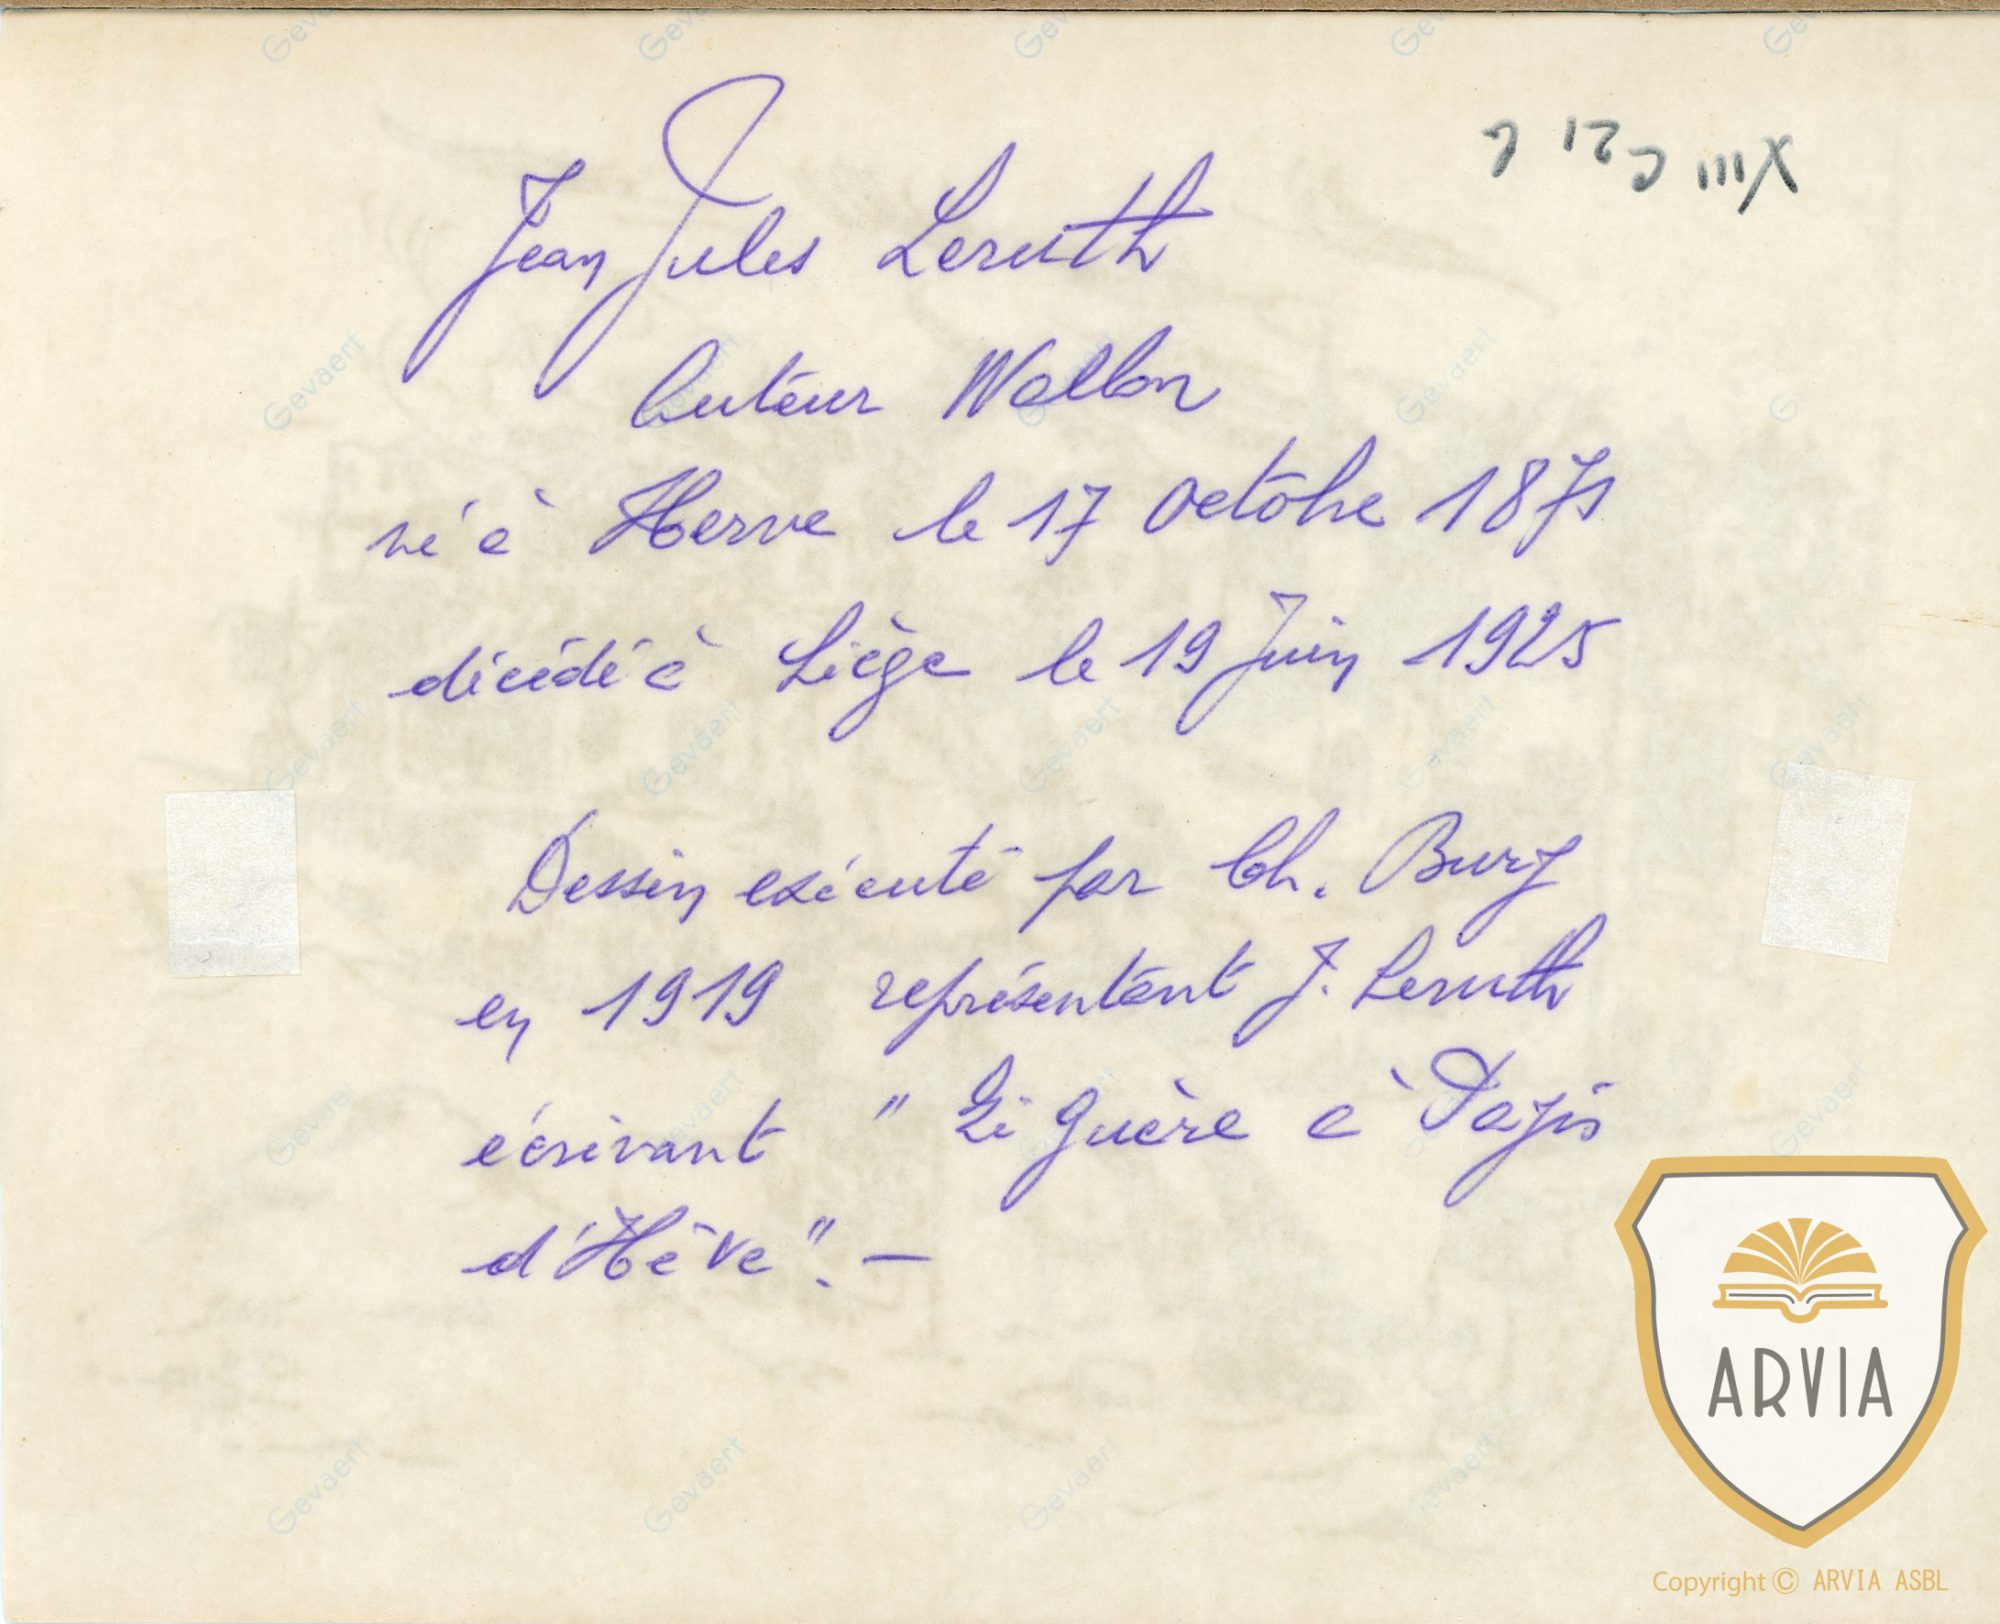 Jean Jules Leruth
Auteur Wallon
né à Herve le 17 Octobre 1871
décédé à Liège le 19 Juin 1925
Dessin exécuté par Ch. Bury
en 1919 représentant J. Leruth
écrivant " Li Guère à Payis
d'Hêve". —
XIII
Gevaert
ARVIA
Copyright © ARVIA ASBL